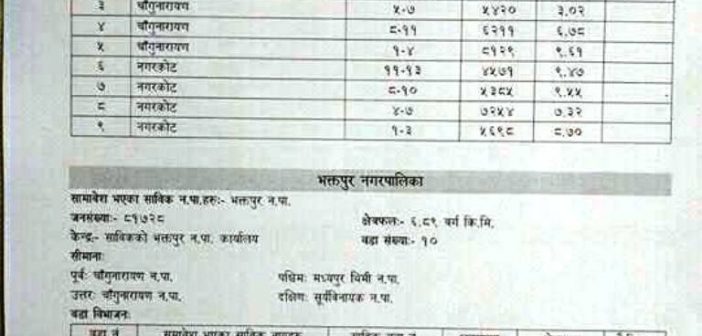 ३ चाँगुनारायण ५-७ ५४२० ३.०२
४ चाँगुनारायण ८-११ ६२११ ६.७८
५ चाँगुनारायण १-४ ८१२९ ९.६१
६ नगरकोट ११-१३ ४५७१ ९.४७
७ नगरकोट ८-१० ५३८५ ९.५५
८ नगरकोट ४-७ ७२५४ ७.३२
९ नगरकोट १-३ ५६९८ ८.७०
भक्तपुर नगरपालिका
समावेश भएका साविक न.पा.हरुः- भक्तपुर न.पा.
जनसंख्याः- ८१७२८ क्षेत्रफलः- ६.८९ वर्ग कि.मि.
केन्द्रः- साविकको भक्तपुर न.पा. कार्यालय वडा संख्याः- १०
सीमानाः
पूर्वः चाँगुनारायण न.पा. पश्चिमः मध्यपुर थिमी न.पा.
उत्तरः चाँगुनारायण न.पा. दक्षिणः सूर्यविनायक न.पा.
वडा विभाजनः
वडा नं. समावेश भएका साविक